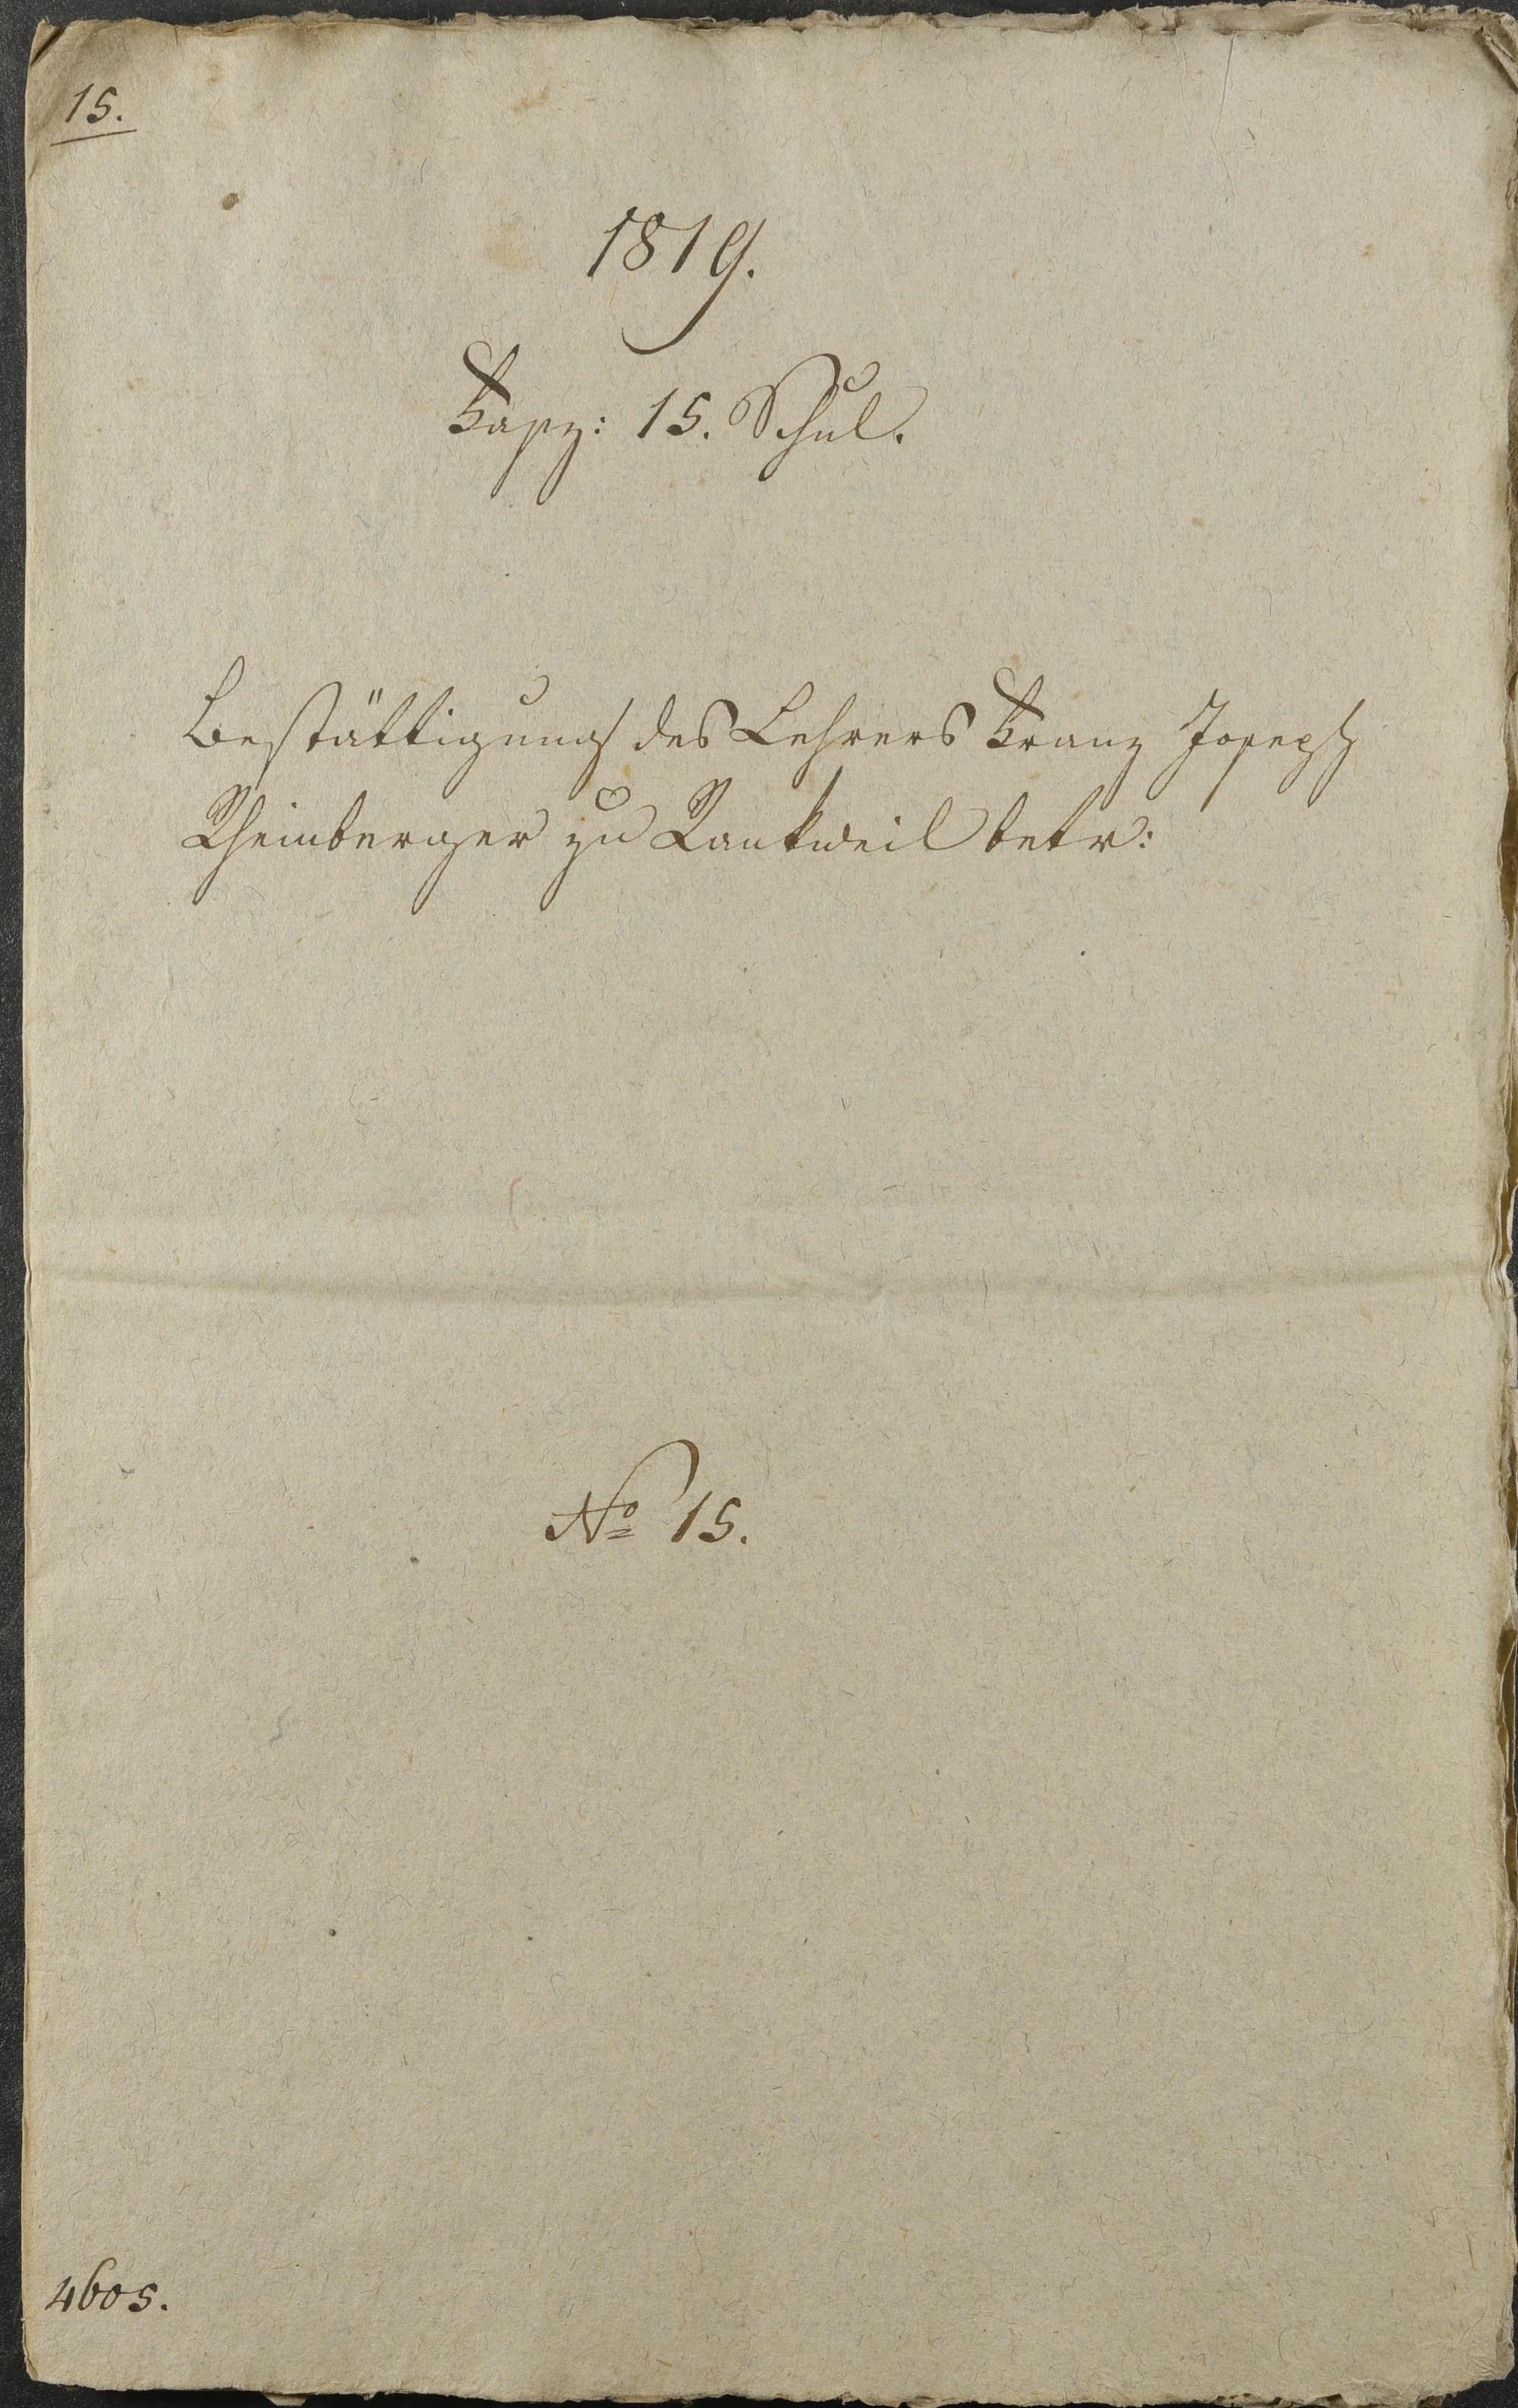 15.
1819.
Fasz: 15. Schul.
Bestättigung des Lehrers Franz Joseph
Rheinberger zu Rankweil betr:
No 15.
4605.